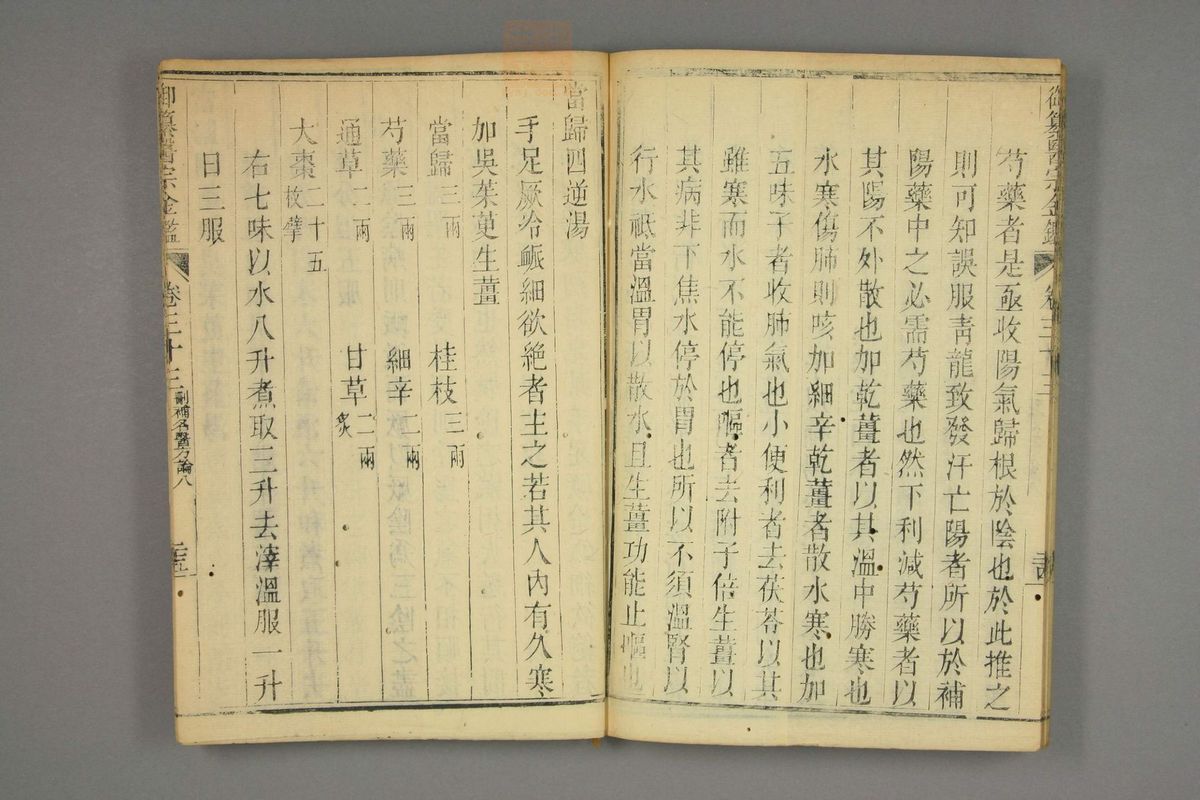 御纂醫宗金鑑 卷三十三
芍藥者是亟收陽氣歸根於陰也於此推之
則可知誤服靑龍致發汗亡陽者所以於補
陽藥中之必需芍藥也然下利減芍藥者以
其陽不外散也加乾薑者以其溫中勝寒也
水寒傷肺則咳加細辛乾薑者散水寒也加
五味子者收肺氣也小便利者去茯苓以其
雖寒而水不能停也嘔者去附子倍生薑以
其病非下焦水停於胃也所以不須溫腎以
行水祗當溫胃以散水且生薑功能止嘔也
當歸四逆湯
手足厥冷脈細欲絕者主之若其人內有久寒
加吳茱萸生薑
當歸三兩 桂枝三兩
芍藥三兩 細辛二兩
通草二兩 甘草二兩炙
大棗二十五枚擘
右七味以水八升煮取三升去滓溫服一升
日三服
御纂醫宗金鑑 卷三十三 刪補名醫方論八